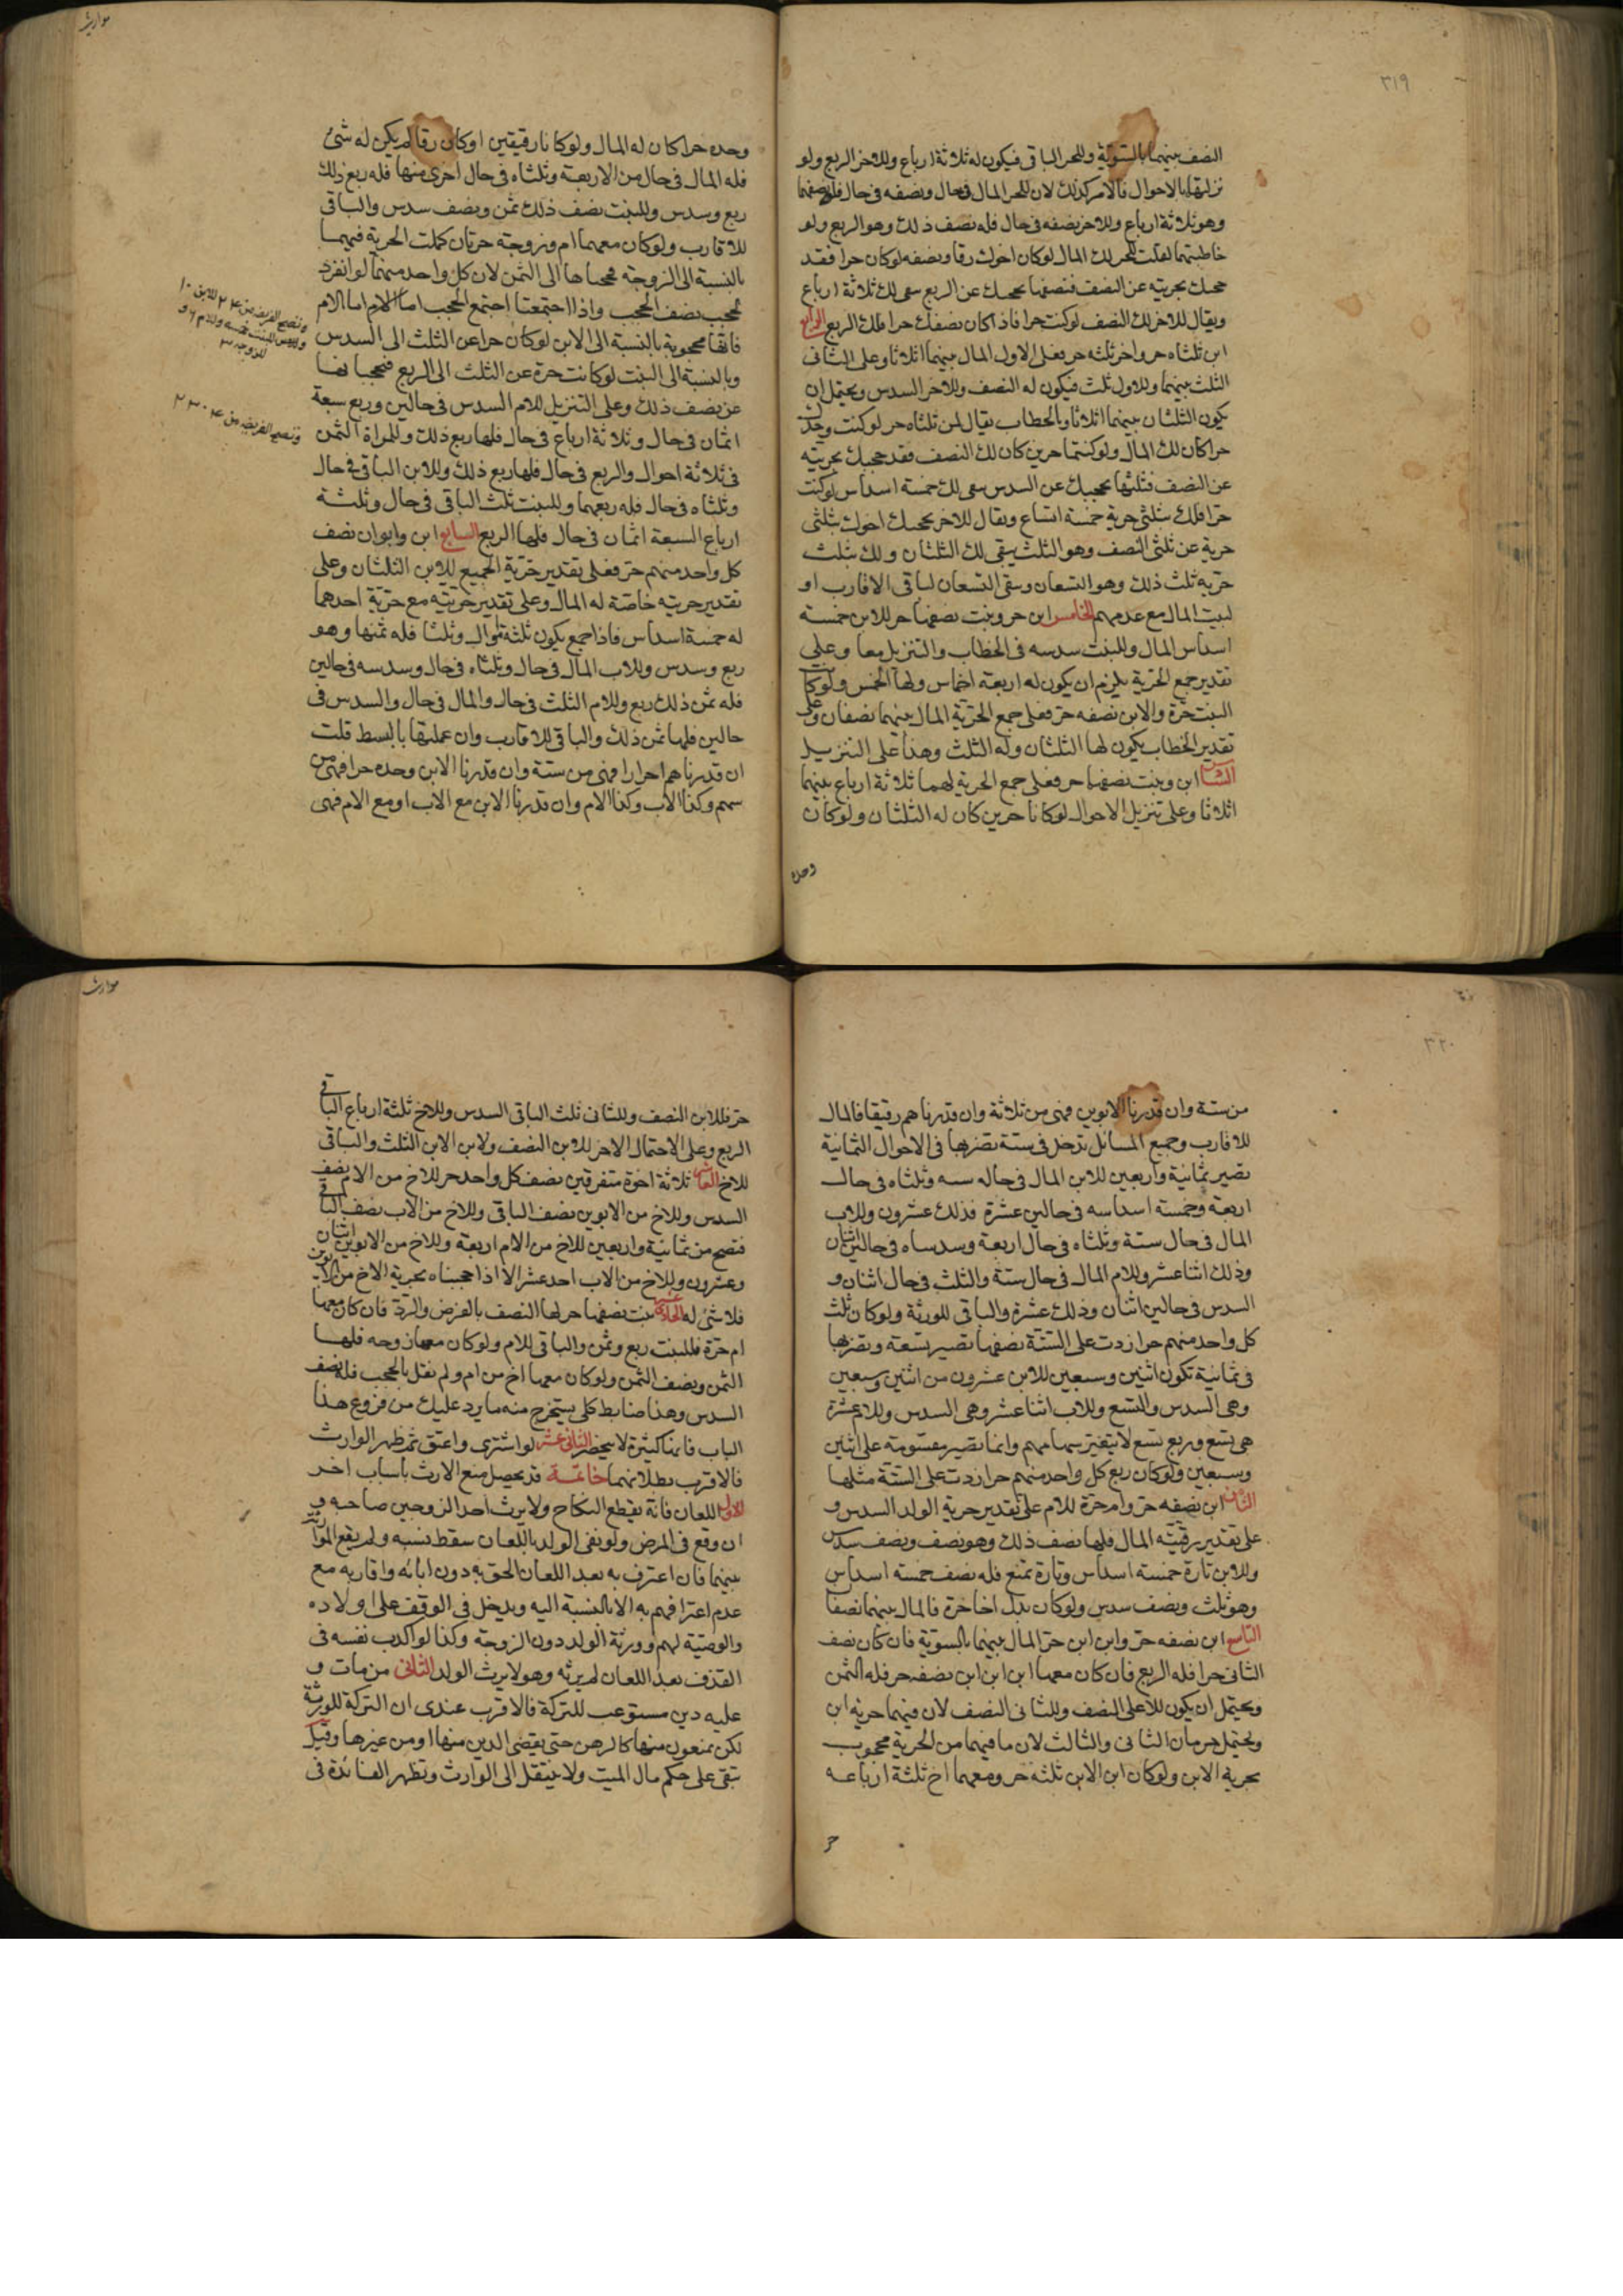 ٣١٩
النصف بينهما بالسوية وللحر الباقى فيكون له ثلاثة ارباع وللاخر الربع ولو
نزلتهما بالاحوال فالامر كذلك لان للحر المال فى حال ونصفه فى حال فله نصفهما
وهو ثلاثة ارباع وللاخر نصفه فى حال فله نصف ذلك وهو الربع ولو
خاطبتهما لقلت للحر لك المال لو كان اخوك رقا ونصفه لو كان حرا فقد
حجبك بحريته عن النصف فنصفها يحجبك عن الربع يبقى لك ثلاثة ارباع
ويقال للاخر لك النصف لو كنت حرا فاذا كان نصفك حرا فلك الربع الرابع
ابن ثلثاه حر واخر ثلثه حر فعلى الاول المال بينهما اثلاثا وعلى الثانى
الثلث بينهما وللاول ثلث فيكون له النصف وللاخر السدس ويحتمل ان
يكون الثلثان بينهما اثلاثا وبالخطاب يقال لمن ثلثاه حر لو كنت وحدك
حرا كان لك المال ولو كنتما حرين كان لك النصف فقد حجبك بحريته
عن النصف فثلثها يحجبك عن السدس يبقى لك خمسة اسداس لو كنت
حرا فلك بثلثى حرية خمسة اتساع ويقال للاخر يحجبك اخوك بثلثى
حرية عن ثلثى النصف وهو الثلث يبقى لك الثلثان ولك بثلث
حرية ثلث ذلك وهو التسعان وبقى التسعان لباقى الاقارب او
لبيت المال مع عدمهم الخامس ابن حر وبنت نصفها حر للابن خمسة
اسداس المال وللبنت سدسه فى الخطاب والتنزيل معا وعلى
تقدير جمع الحرية يلزم ان يكون له اربعة اخماس ولها الخمس ولو كانت
البنت حرة والابن نصفه حر فعلى جمع الحرية المال بينهما نصفان وعلى
تقدير الخطاب يكون لها الثلثان وله الثلث وهذا على التنزيل
السادس ابن وبنت نصفهما حر فعلى جمع الحرية لهما ثلاثة ارباع بينهما
اثلاثا وعلى تنزيل الاحوال لو كانا حرين كان له الثلثان ولو كان
وحده
مواريث
وحده حرا كان له المال ولو كانا رقيقين او كان رقا لم يكن له شئ
فله المال فى حال من الاربعة وثلثاه فى حال اخرى منها فله ربع ذلك
ربع وسدس وللبنت نصف ذلك ثمن ونصف سدس والباقى
للاقارب ولو كان معهما ام وزوجة حرتان كملت الحرية فيهما
بالنسبة الى الزوجة فحجباها الى الثمن لان كل واحد منهما لو انفرد
لحجب نصف الحجب واذا اجتمعتا اجتمع الحجب اما الام
فانها محجوبة بالنسبة الى الابن لو كان حرا عن الثلث الى السدس
وبالنسبة الى البنت لو كانت حرة عن الثلث الى الربع فيحجبانها
عن نصف ذلك وعلى التنزيل للام السدس فى حالين وربع سبعة
اثمان فى حال وثلاثة ارباع فى حال فلها ربع ذلك وللمراة الثمن
فى ثلاثة احوال والربع فى حال فلها ربع ذلك وللابن الباقى فى حال
وثلثاه فى حال فله ربعهما وللبنت ثلث الباقى فى حال وثلثة
ارباع السبعة اثمان فى حال فلها الربع السابع ابن وابوان نصف
كل واحد منهم حر فعلى تقدير حرية الجميع للابن الثلثان وعلى
تقدير حريته خاصة له المال وعلى تقدير حريته مع حرية احدهما
له خمسة اسداس فاذا جمع يكون ثلثة اموال وثلثا فله ثمنها وهو
ربع وسدس وللاب المال فى حال وثلثاه فى حال وسدسه فى حالين
فله ثمن ذلك ربع وللام الثلث فى حال والمال فى حال والسدس فى
حالين فلها ثمن ذلك والباقى للاقارب وان عملتها بالبسط قلت
ان قدرناهم احرارا فهى من ستة وان قدرنا الابن وحده حرا فهى من
سهم وكذا الاب وكذا الام وان قدرنا الابن مع الاب او مع الام فهى
وتصح الفريضة من ٢٤ للابن ١٠
وتصح الفريضة من
٣٢٠
من ستة وان قدرنا الابوين فهى من ثلاثة وان قدرناهم رقيقا فالمال
للاقارب وجميع المسائل تدخل فى ستة تضربها فى الاحوال الثمانية
تصير ثمانية واربعين للابن المال فى حال ستة وثلثاه فى حال
اربعة وخمسة اسداسه فى حالين عشرة فذلك عشرون وللاب
المال فى حال ستة وثلثاه فى حال اربعة وسدساه فى حالين اثنان
وذلك اثنا عشر وللام المال فى حال ستة والثلث فى حال اثنان و
السدس فى حالين اثنان وذلك عشرة والباقى للورثة ولو كان ثلث
كل واحد منهم حرا زدت على الستة نصفها تصير تسعة وتضربها
فى ثمانية تكون اثنين وسبعين للابن عشرون من اثنين وسبعين
وهى السدس والتسع وللاب اثنا عشر وهى السدس وللام عشرة
هى تسع وربع تسع لا يتغير سهامهم وانما تصير مقسومة على اثنين
وسبعين ولو كان ربع كل واحد منهم حرا زدت على الستة مثلها
الثامن ابن نصفه حر وام حرة للام على تقدير حرية الولد السدس و
على تقدير رقيته المال فلها نصف ذلك وهو نصف ونصف سدس
وللابن تارة خمسة اسداس وتارة تمنع فله نصف خمسة اسداس
وهو ثلث ونصف سدس ولو كان بدل اخا حرة فالمال بينهما نصفا
التاسع ابن نصفه حر وابن ابن حر المال بينهما بالسوية فان كان نصف
الثانى حرا فله الربع فان كان معهما ابن ابن ابن نصفه حر فله الثمن
ويحتمل ان يكون للاعلى النصف وللثانى النصف لان فيهما حرية ابن
ويحتمل حرمان الثانى والثالث لان ما فيهما من الحرية محجوب
بحرية الابن ولو كان ابن الابن ثلثه حر ومعهما اخ ثلثة ارباعه
حر
مواريث
حر فللابن النصف وللثانى ثلث الباقى السدس وللاخ ثلثة ارباع الباقى
الربع وعلى الاحتمال الاخر للابن النصف ولابن الابن الثلث والباقى
للاخ العاشر ثلاثة اخوة متفرقين نصف كل واحد حر للاخ من الام نصف
السدس وللاخ من الابوين نصف الباقى وللاخ من الاب نصف الباقى
فتصح من ثمانية واربعين للاخ من الام اربعة وللاخ من الابوين اثنان
وعشرون وللاخ من الاب احد عشر الا اذا حجبناه بحرية الاخ من الابوين
فلا شئ له الحادى عشر بنت نصفها حر لها النصف بالفرض والرد فان كان معها
ام حرة فللبنت ربع وثمن والباقى للام ولو كان معهما زوجه فلها
الثمن ونصف الثمن ولو كان معهما اخ من ام ولم نقل بالحجب فله نصف
السدس وهذا ضابط كلى يستخرج منه ما يرد عليك من فروع هذا
الباب فانها كثيرة لا تنحصر الثانى عشر لو اشترى واعتق ثم ظهر الوارث
فالاقرب بطلانهما خاتمة قد يحصل منع الارث باسباب اخر
الاول اللعان فانه يقطع النكاح ولا يرث احد الزوجين صاحبه و
ان وقع فى المرض ولو نفى الولد باللعان سقط نسبه ولم يقع الموارثة
بينهما فان اعترف به بعد اللعان الحق به دون ابائه واقاربه مع
عدم اعترافهم به الا بالنسبة اليه ويدخل فى الوقف على اولاده
والوصية لهم وورثة الولد دون الزوجة وكذا لو اكذب نفسه فى
القذف بعد اللعان لم يرثه وهو لا يرث الولد الثانى من مات و
عليه دين مستوعب للتركة فالاقرب عندى ان التركة للورثة
لكن يمنعون منها كالرهن حتى يقضى الدين منها او من غيرها وقيل
تبقى على حكم مال الميت ولا ينتقل الى الوارث وتظهر الفائدة فى